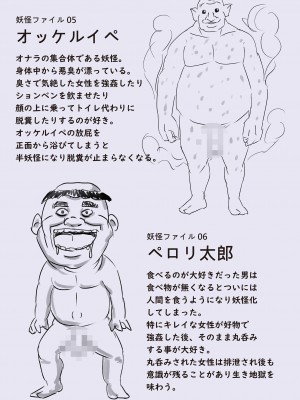 妖怪ファイル05
オッケルイペ
オナラの集合体である妖怪。
身体中から悪臭が漂っている。
臭さで気絶した女性を強姦したり
ションベンを飲ませたり
顔の上に乗ってトイレ代わりに
脱糞したりするのが好き。
オッケルイペの放屁を
正面から浴びてしまうと
半妖怪になり脱糞が止まらなくなる。
妖怪ファイル06
ペロリ太郎
食べるのが大好きだった男は
食べ物が無くなるとついには
人間を食うようになり妖怪化
してしまった。
特にキレイな女性が好物で
強姦した後、そのまま丸呑み
する事が大好き。
丸呑みされた女性は排泄され後も
意識が残ることがあり生き地獄を
味わう。